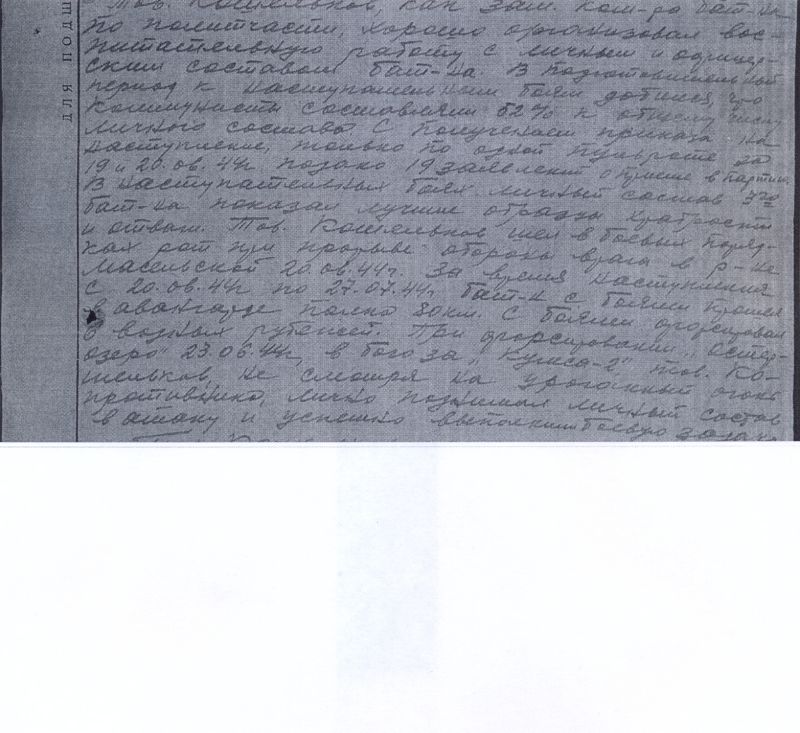 ДЛЯ ПОДШ
Тов. Кошельков, как зам. ком-ра бат-на
по политчасти, хорошо организовал вос-
питательную работу с личным и офицер-
ским составом бат-на. В подготовительный
период к наступательным боям добился, что
коммунисты составляли 62% к общему числу
личного состава. С получением приказа на
наступление, только по одной пульроте за
19 и 20.06.44г. подано 19 заявлений о приеме в партию.
В наступательных боях личный состав 3го
бат-на показал лучшие образцы храбрости
и отваги. Тов. Кошельков шел в боевых поряд-
ках рот при прорыве обороны врага в р-не
Масельской 20.06.44г. За время наступления
с 20.06.44г по 27.07.44г. бат-н с боями прошел
в авангарде полка 80 км. С боями форсировал
водных рубежей. При форсировании „Остер-
озеро" 23.06.44г, в бою за „Кумса-2" тов. Ко-
шельков, не смотря на ураганный огонь
противника, лично поднимал личный состав
в атаку и успешно выполнил боевую